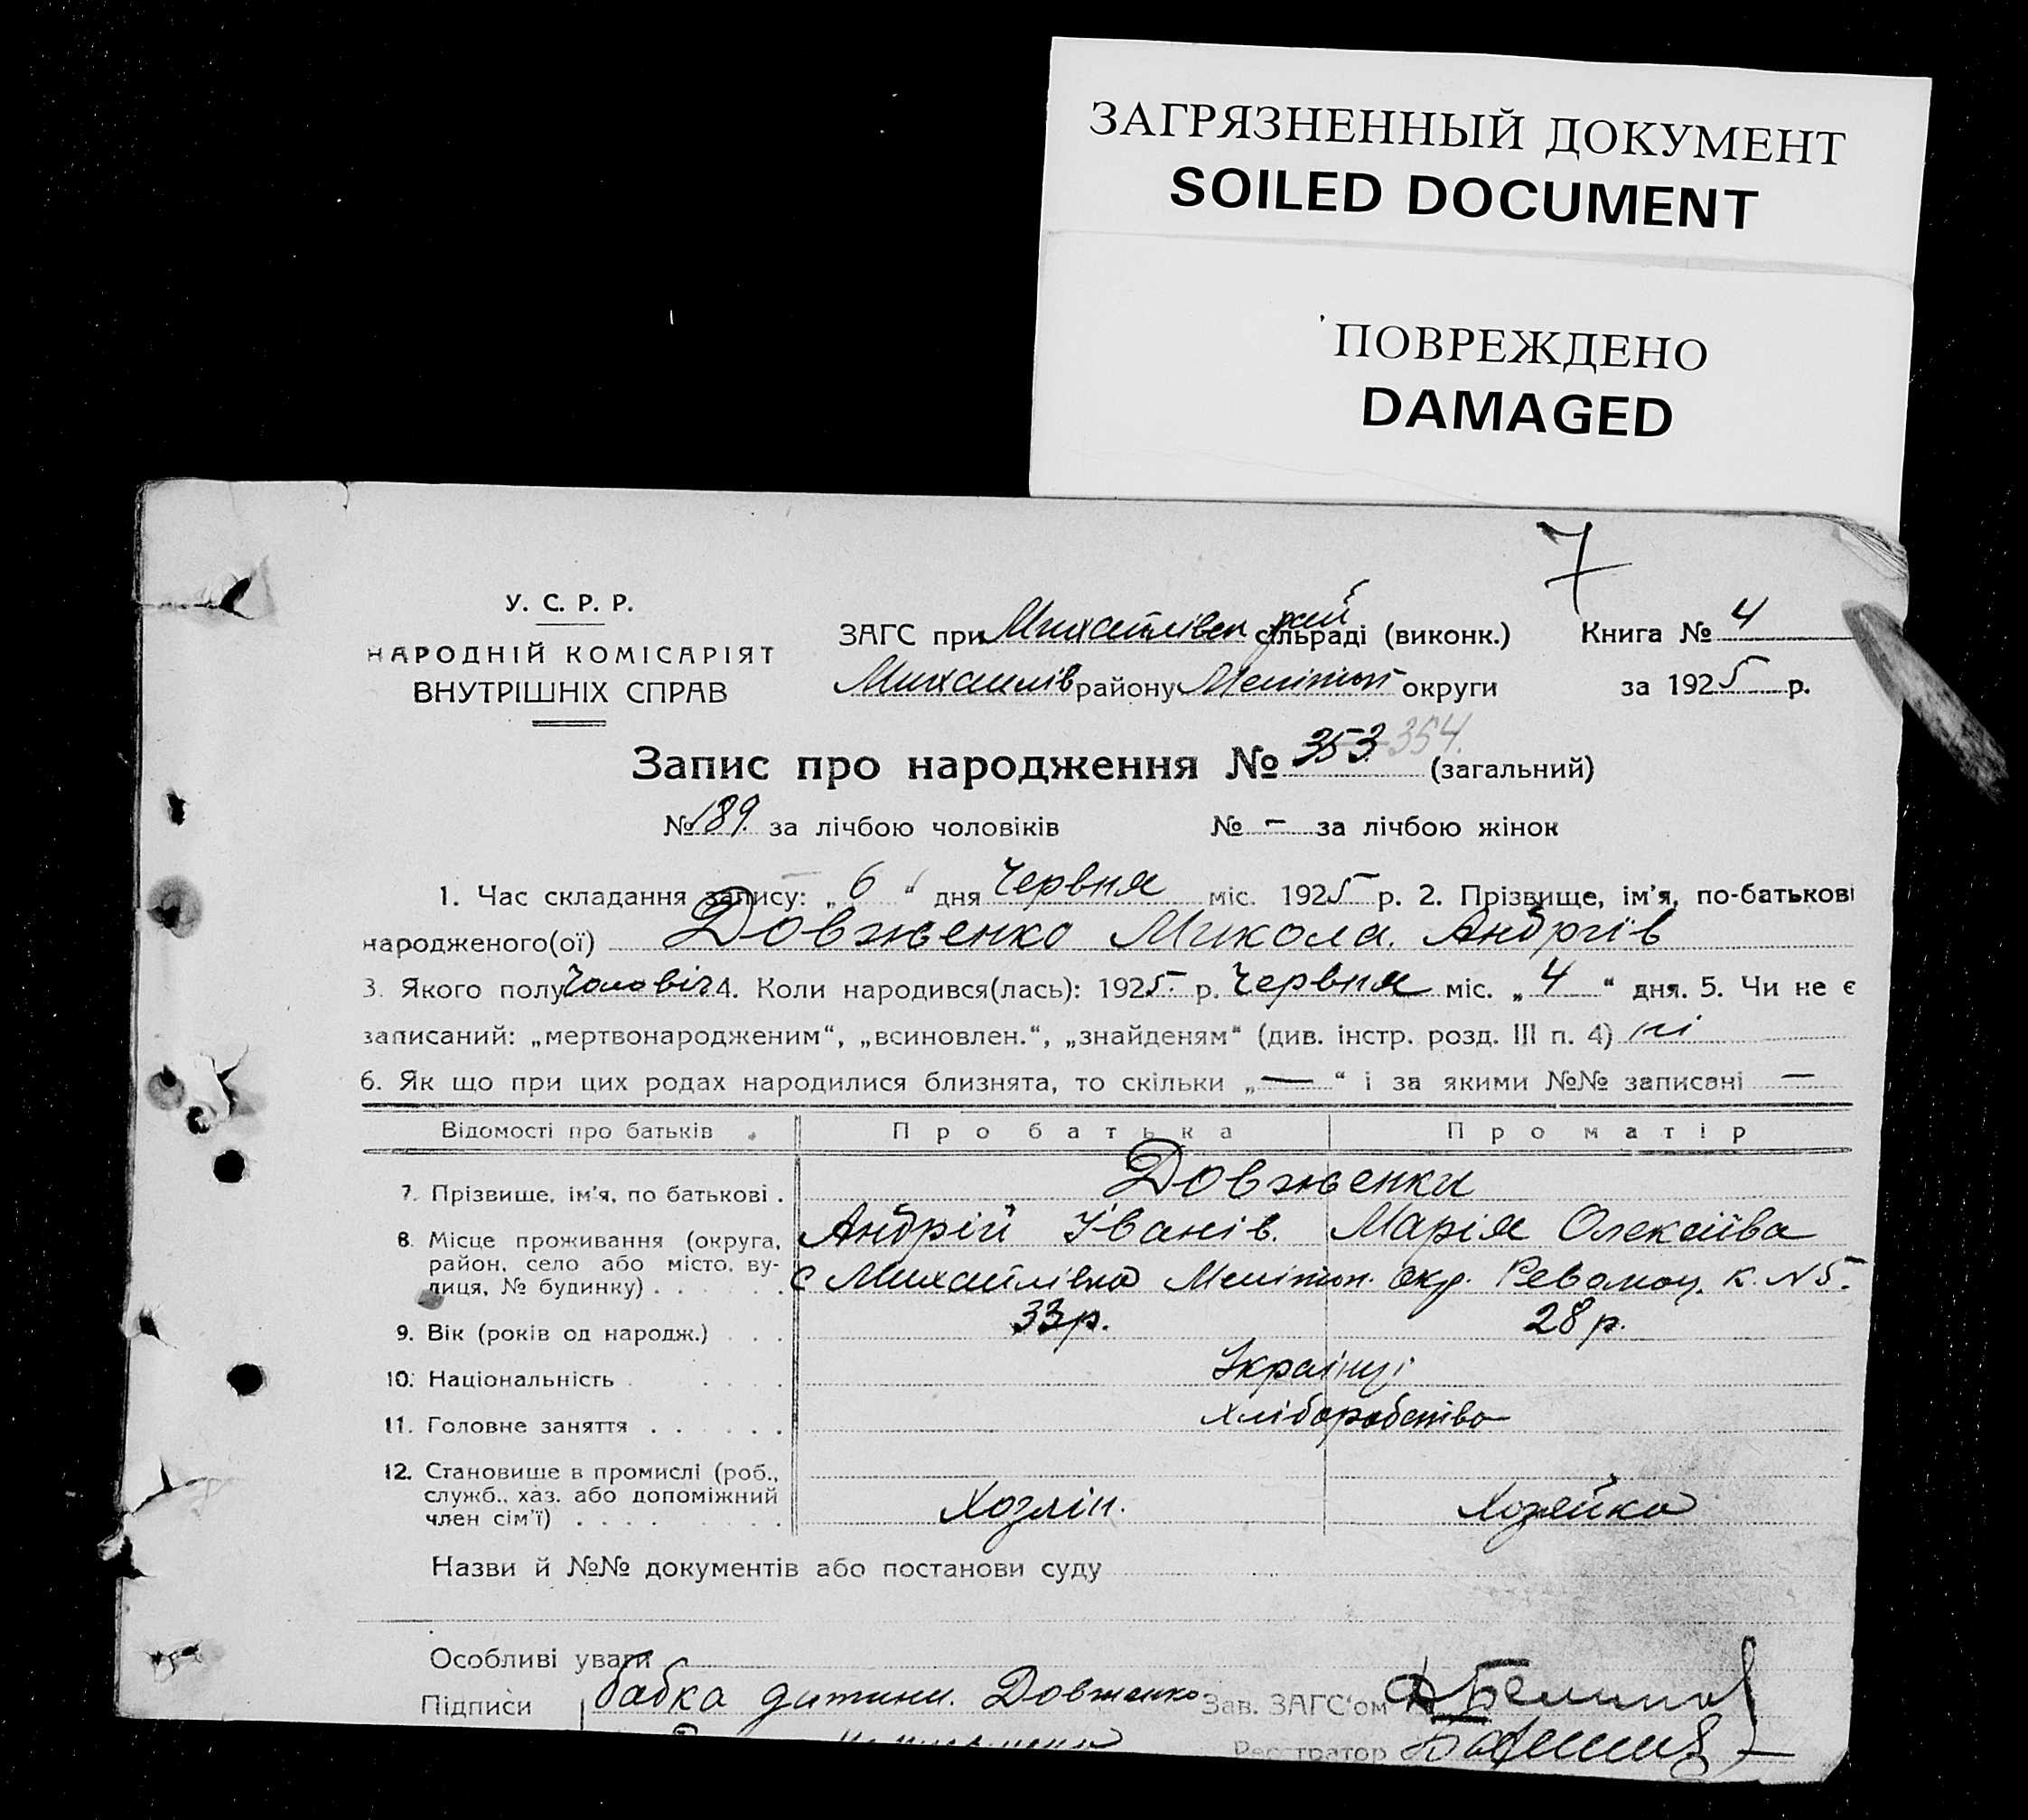 ЗАГРЯЗНЕННЫЙ ДОКУМЕНТ
SOILED DOCUMENT
ПОВРЕЖДЕНО
DAMAGED
7
У. С. Р. Р.
НАРОДНІЙ КОМІСАРІЯТ
ВНУТРІШНІХ СПРАВ
ЗАГС при Михайлівск рай сільраді (виконк.) Книга № 4
Михайлів району Мелітоп округи за 1925 р.
Запис про народження № 353 354. (загальний)
№ 189. за лічбою чоловіків № – за лічбою жінок
1. Час складання запису: „ 6 “ дня Червня міс. 1925 р. 2. Прізвище, ім'я, по-батькові
народженого(ої) Довженко Микола. Андріїв
3. Якого полу Чоловіч. 4. Коли народився(лась): 1925 р. Червня міс. „ 4 “ дня. 5. Чи не є
записаний: „мертвонародженим“, „всиновлен.“, „знайденям“ (див. інстр. розд. III п. 4) ні
6. Як що при цих родах народилися близнята, то скільки „ — “ і за якими №№ записані —
Відомості про батьків Про батька Про матір
7. Прізвище, ім'я, по батькові . Довженки
Андрій Іванів. Марія Олексіїва
8. Місце проживання (округа, район, село або місто, вулиця, № будинку) . . . . . . с Михайлівка Мелітоп. окр. к. N 5.
9. Вік (років од народж.) . . . 33 р. 28 р.
10. Національність . . . . . Українці
11. Головне заняття . . . . . . хліборобство
12. Становище в промислі (роб.,
служб., хаз. або допоміжний
член сім'ї) . . . . . . . . . Хозяін. Хозяйка
Назви й №№ документів або постанови суду
Особливі уваги
Підписи бабка дитини. Довженко Зав. ЗАГС'ом
Реєстратор